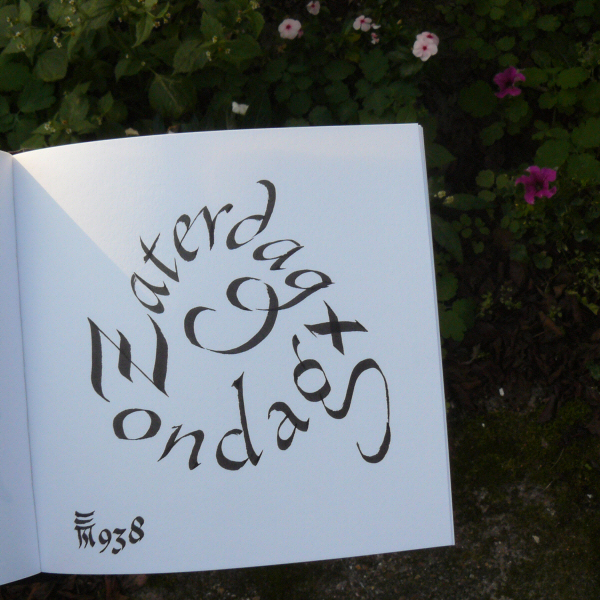 Zaterdag
ondag
938